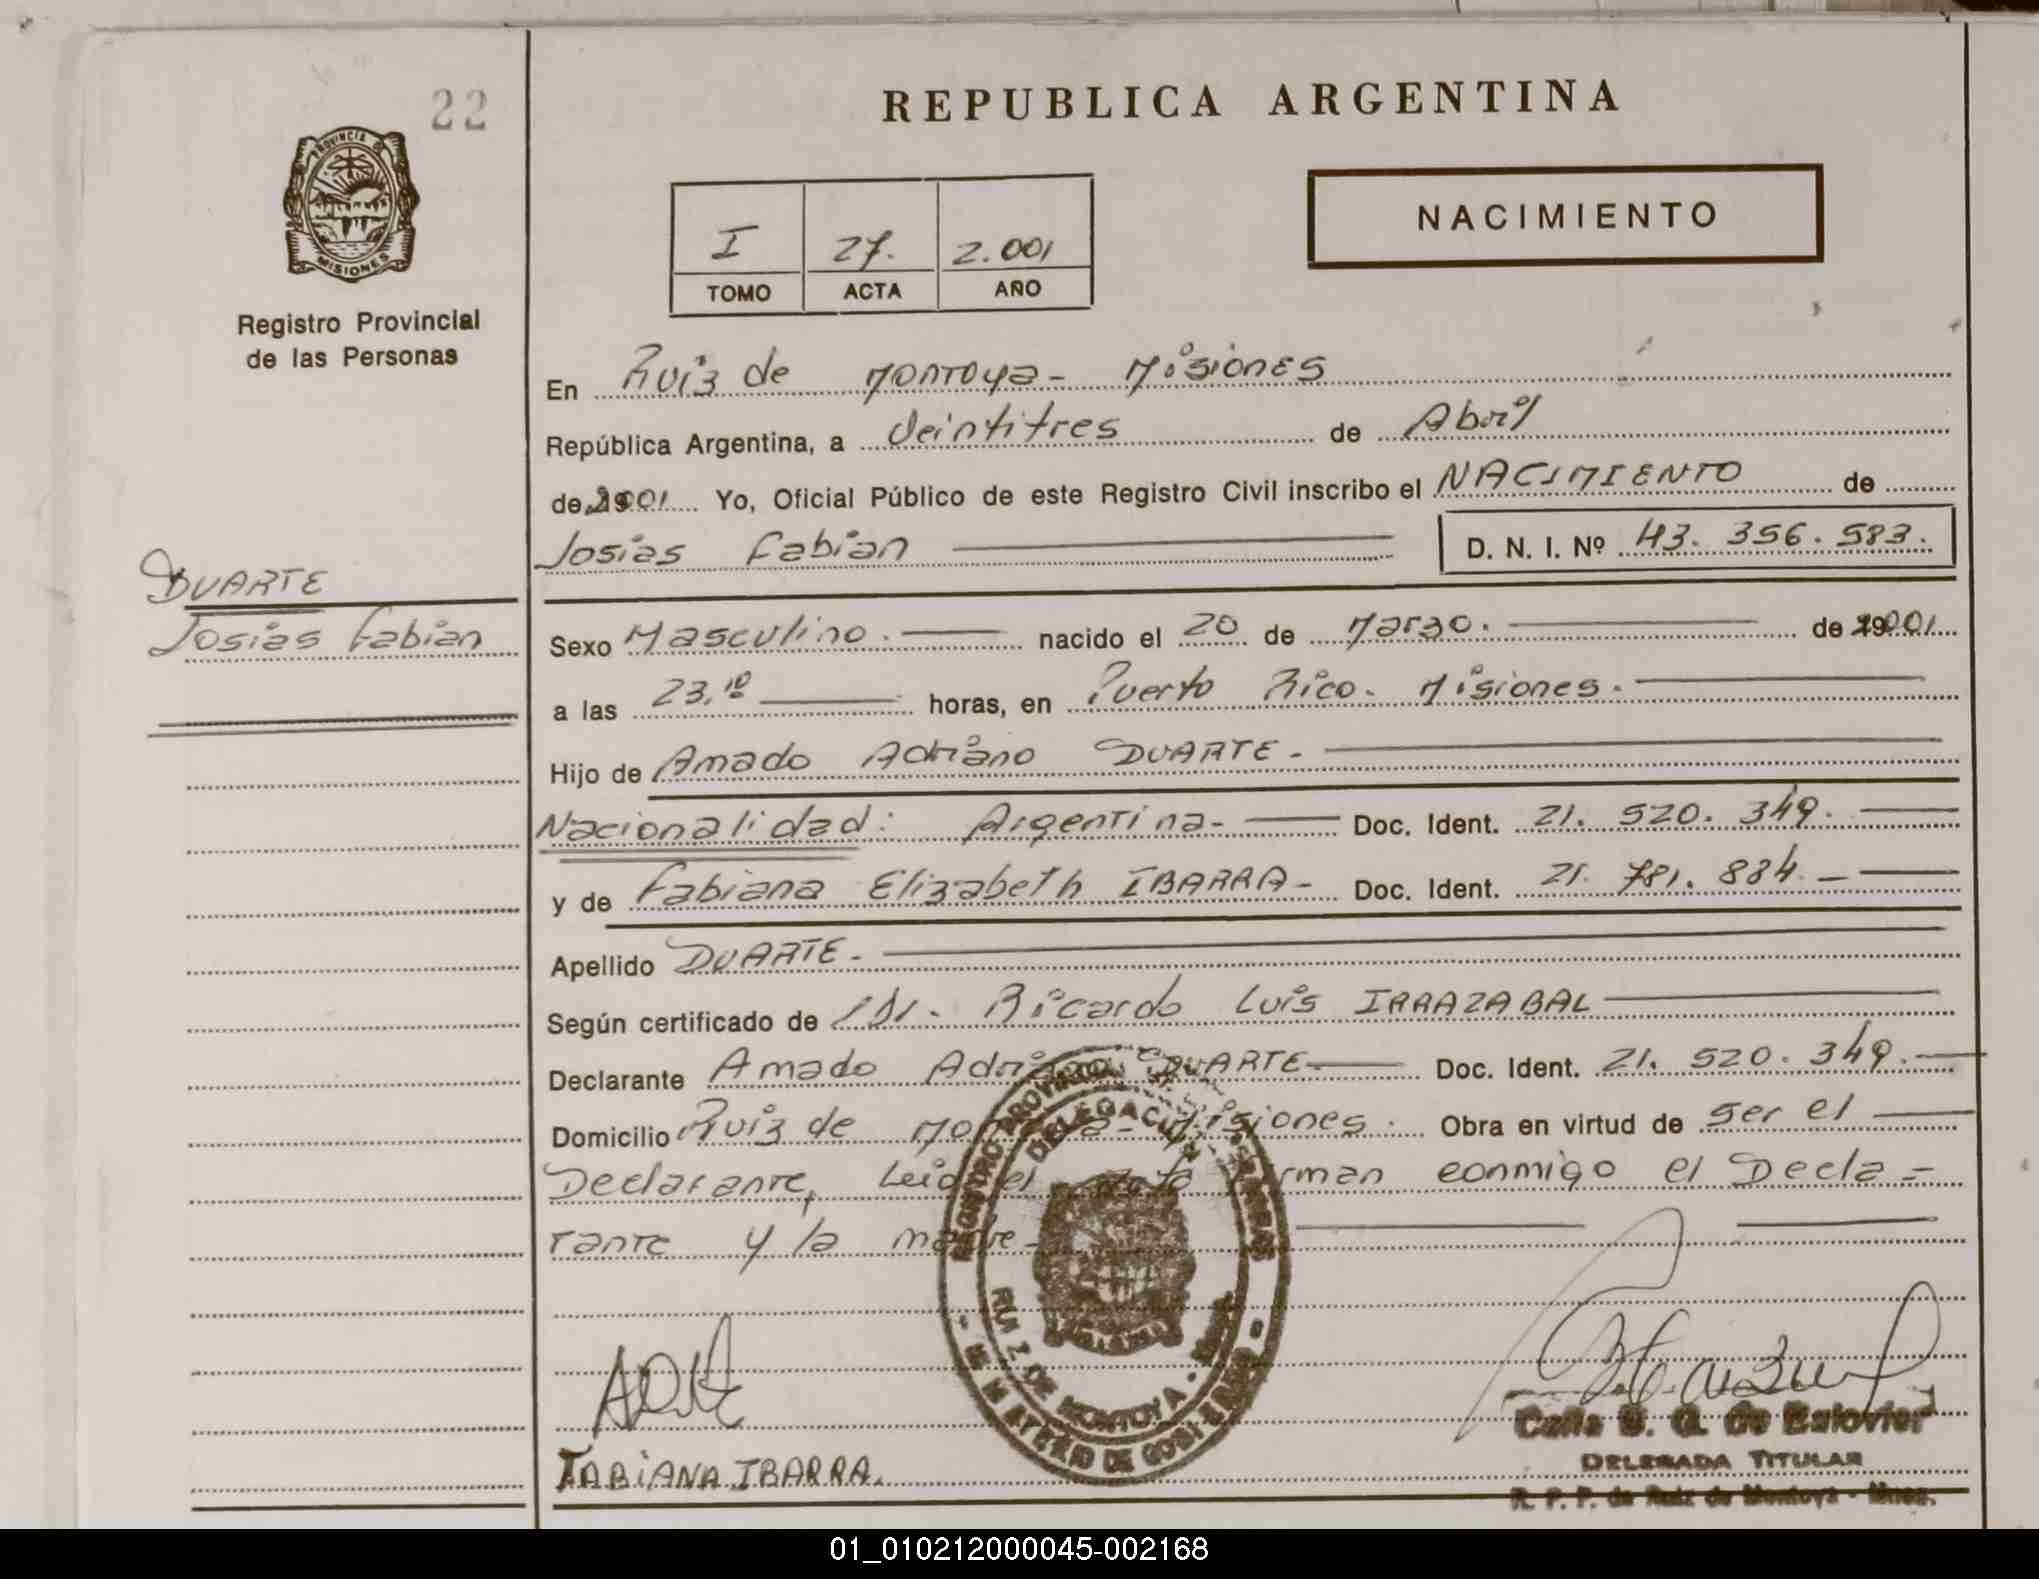 22
REPUBLICA ARGENTINA
PROVINCIA DE
MISIONES
Registro Provincial
de las Personas
I 27. 2.001
TOMO ACTA AÑO
NACIMIENTO
En Ruiz de Montoya - Misiones
República Argentina, a Veintitres de Abril
de 2001 Yo, Oficial Público de este Registro Civil inscribo el NACIMIENTO de
Josias Fabian D. N. I. Nº 43. 356. 583.
DUARTE
Josias Fabian
Sexo Masculino. nacido el 20 de Marzo. de 2001
a las 23,10 horas, en Puerto Rico. Misiones.
Hijo de Amado Adriano DUARTE.
Nacionalidad: Argentina- Doc. Ident. 21. 520. 349.
y de Fabiana Elizabeth IBARRA- Doc. Ident. 21. 781. 884.
Apellido DUARTE.
Según certificado de Dr. Ricardo Luis IRRAZABAL
Declarante Amado Adriano DUARTE Doc. Ident. 21. 520. 349.
Domicilio Ruiz de Montoya - Misiones. Obra en virtud de ser el
Declarante, Leida el acta firman conmigo el Decla=
rante y la madre-
REGISTRO PROVINCIAL DE LAS PERSONAS
DELEGACION
RUIZ DE MONTOYA
MINISTERIO DE GOBIERNO
FABIANA IBARRA.
G. De
DELEGADA TITULAR
R. P. P. de Ruiz de Montoya - Mnes.
01_010212000045-002168